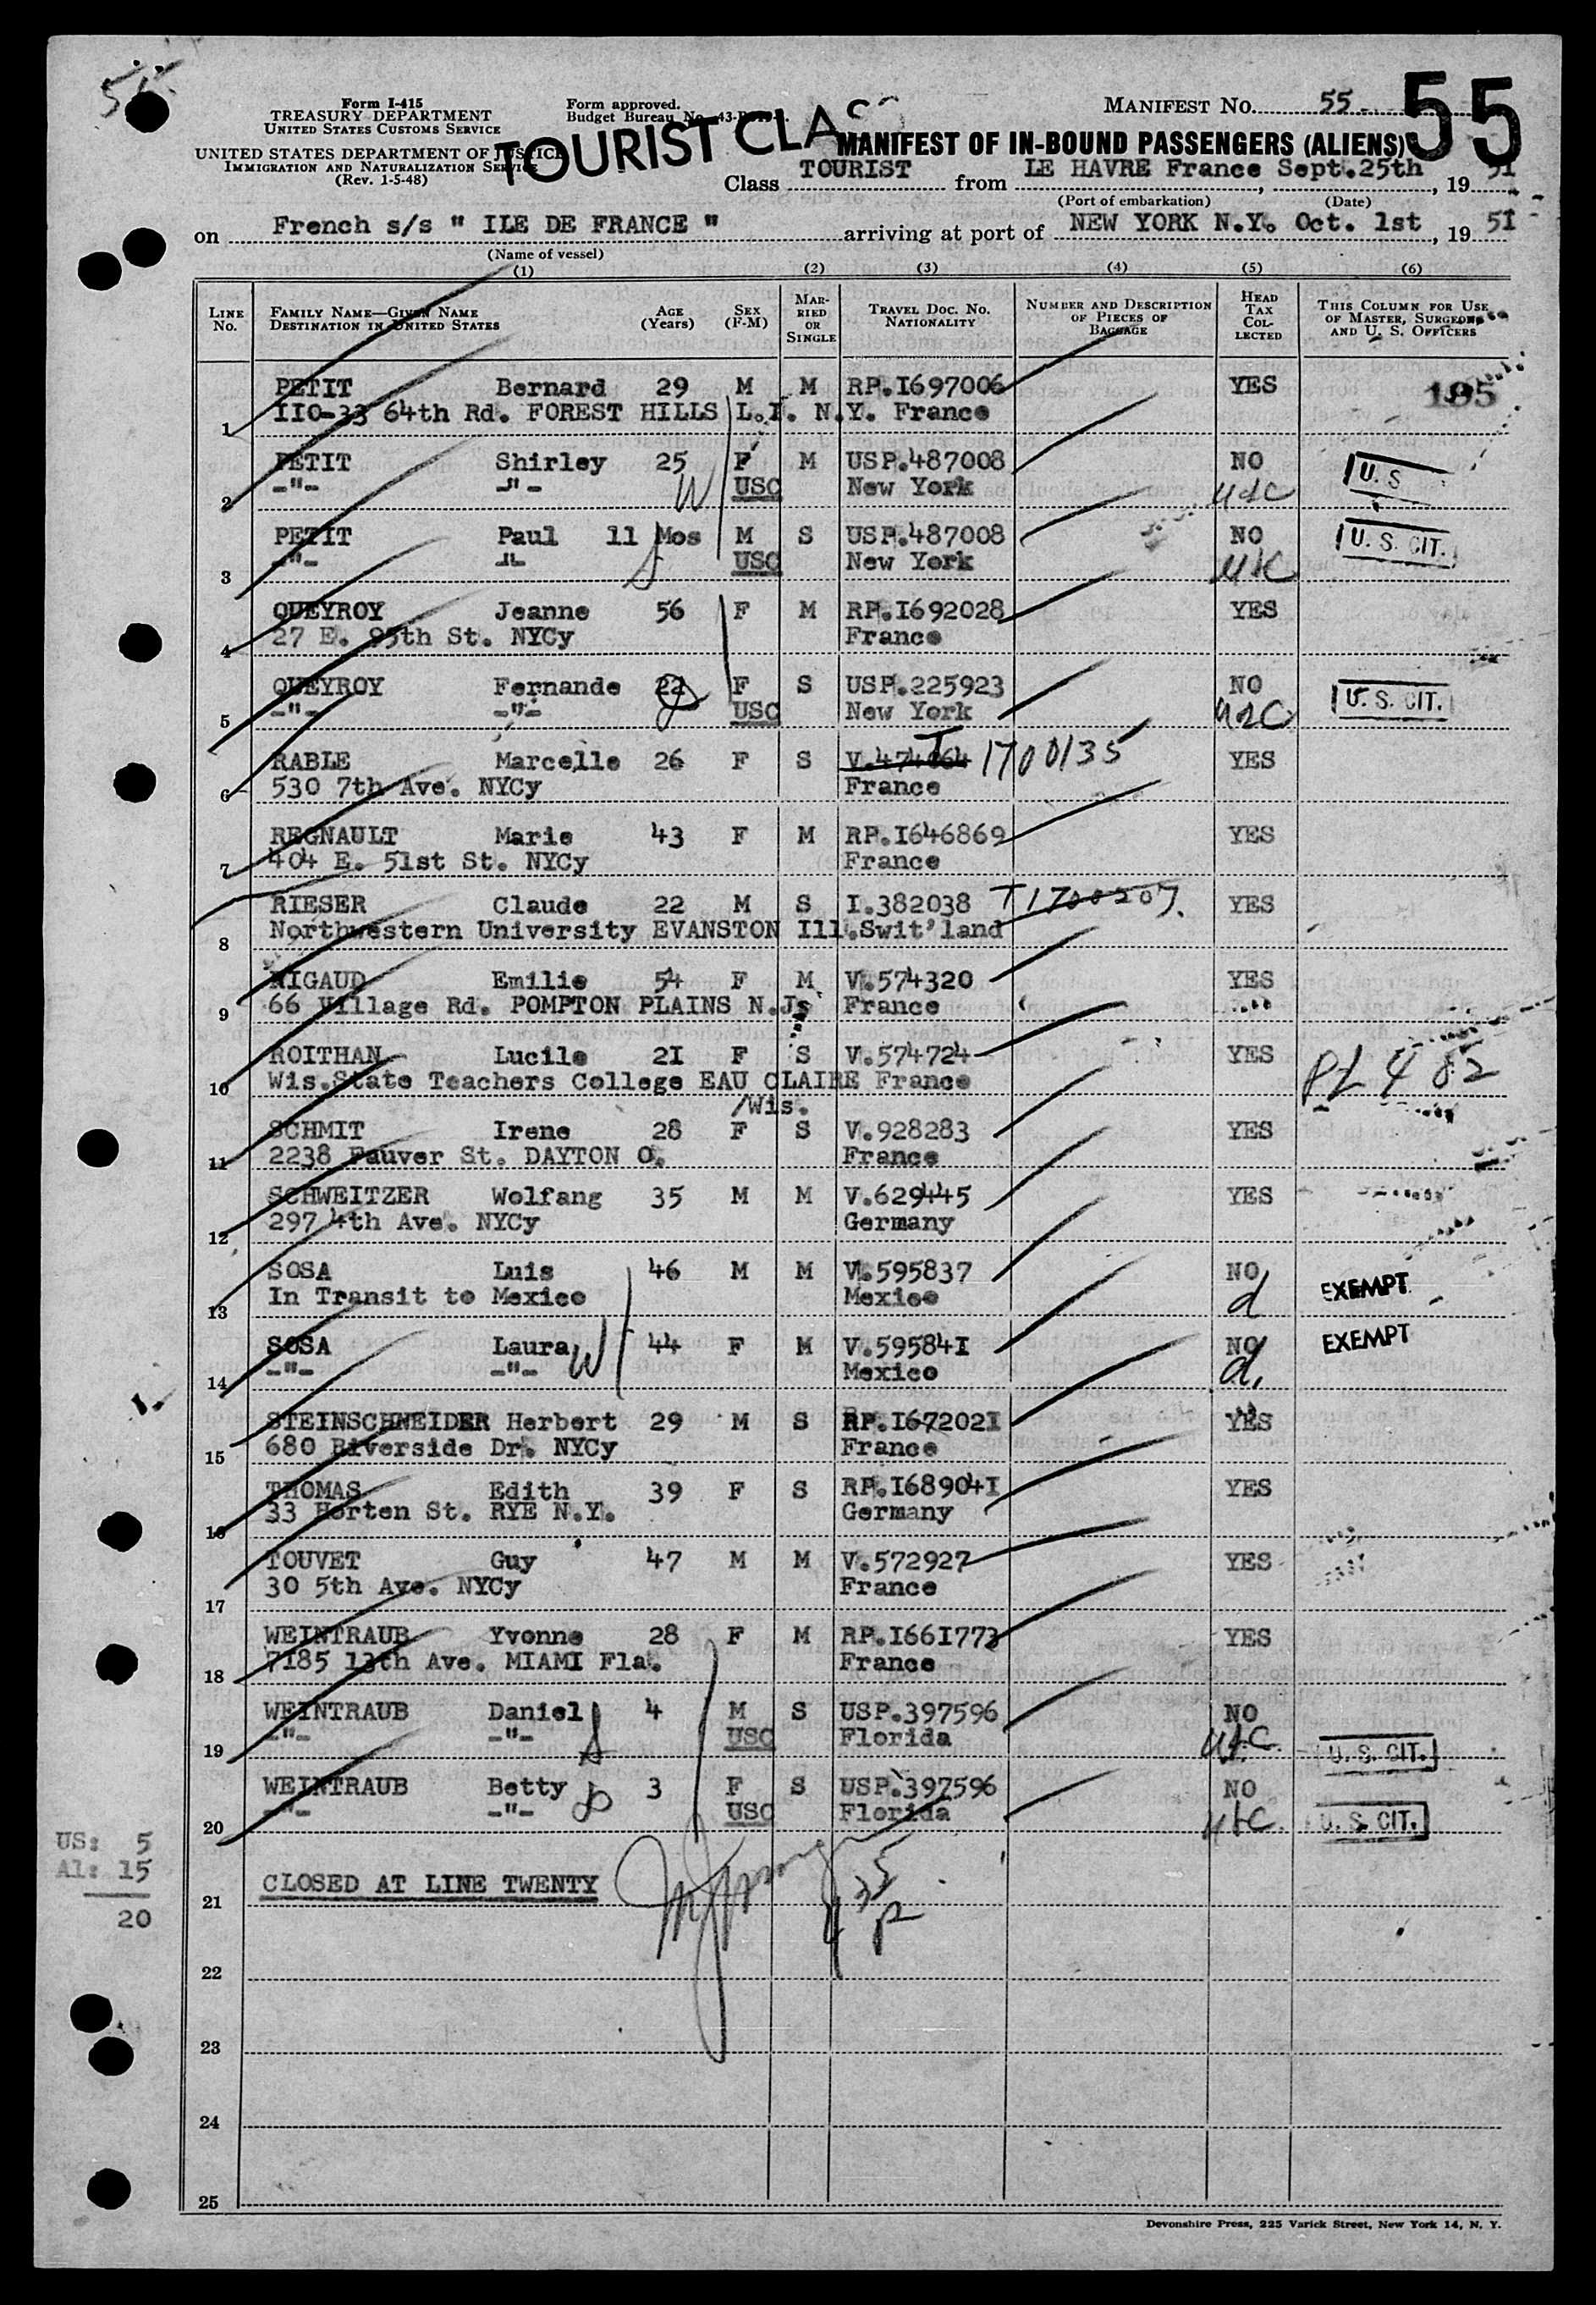 55
Form I-415
TREASURY DEPARTMENT
UNITED STATES CUSTOMS SERVICE
UNITED STATES DEPARTMENT OF JUSTICE
IMMIGRATION AND NATURALIZATION SERVICE
(Rev. 1-5-48)
Form approved.
Budget Bureau No. 43-
TOURIST CLAS
MANIFEST NO. 55
55
MANIFEST OF IN-BOUND PASSENGERS (ALIENS)
Class TOURIST from LE HAVRE France Sept.25th, 19 51
(Port of embarkation) (Date)
on French s/s " ILE DE FRANCE " arriving at port of NEW YORK N.Y. Oct. 1st, 19 5I
(Name of vessel)
(1) (2) (3) (4) (5) (6)
LINE No. FAMILY NAME—GIVEN NAME DESTINATION IN UNITED STATES AGE (Years) SEX (F-M) MARRIED OR SINGLE TRAVEL DOC. NO. NATIONALITY NUMBER AND DESCRIPTION OF PIECES OF BAGGAGE HEAD TAX COLLECTED THIS COLUMN FOR USE OF MASTER, SURGEONS AND U. S. OFFICERS
PETIT Bernard 29 M M RP.I697006 YES 195
1 IIO-33 64th Rd. FOREST HILLS L.I. N.Y. France
PETIT Shirley 25 F M USP.487008 NO U. S.
2 -"- -"- W USC New York usc
PETIT Paul 11 Mos M S USP.487008 NO U. S. CIT.
3 -"- -"- S USC New York usc
QUEYROY Jeanne 56 F M RP.I692028 YES
4 27 E. 95th St. NYCy France
QUEYROY Fernande 22 F S USP.225923 NO U. S. CIT.
5 -"- -"- USC New York usc
RABLE Marcelle 26 F S V.474064 T 1700135 YES
6 530 7th Ave. NYCy France
REGNAULT Marie 43 F M RP.I646869 YES
7 404 E. 51st St. NYCy France
RIESER Claude 22 M S I.382038 T1700207. YES
8 Northwestern University EVANSTON Ill.Swit'land
RIGAUD Emilie 54 F M V.574320 YES
9 66 Village Rd. POMPTON PLAINS N.J. France
ROITHAN Lucile 2I F S V.574724 YES PL 4 82
10 Wis.State Teachers College EAU CLAIRE France
/Wis.
SCHMIT Irene 28 F S V.928283 YES
11 2238 Fauver St. DAYTON O. France
SCHWEITZER Wolfang 35 M M V.629445 YES
12 297 4th Ave. NYCy Germany
SOSA Luis 46 M M V.595837 NO EXEMPT
13 In Transit to Mexico Mexico d
SOSA Laura 44 F M V.59584I NO EXEMPT
14 -"- -"- W Mexico d.
STEINSCHNEIDER Herbert 29 M S RP.I67202I YES
15 680 Riverside Dr. NYCy France
THOMAS Edith 39 F S RP.I68904I YES
16 33 Horten St. RYE N.Y. Germany
TOUVET Guy 47 M M V.572927 YES
17 30 5th Ave. NYCy France
WEINTRAUB Yvonne 28 F M RP.I66I773 YES
18 7I85 13th Ave. MIAMI Fla. France
WEINTRAUB Daniel 4 M S USP.397596 NO
19 -"- -"- USC Florida usc U. S. CIT.
WEINTRAUB Betty 3 F S USP.397596 NO
20 -"- -"- USC Florida usc U. S. CIT.
US: 5
Al: 15
20
21 CLOSED AT LINE TWENTY
22
23
24
25
Devonshire Press, 225 Varick Street, New York 14, N. Y.